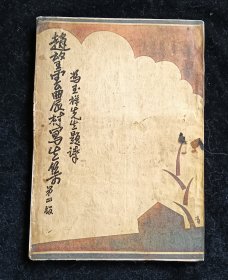 趙望雲農村寫生集 第四版
馮玉祥先生題詩